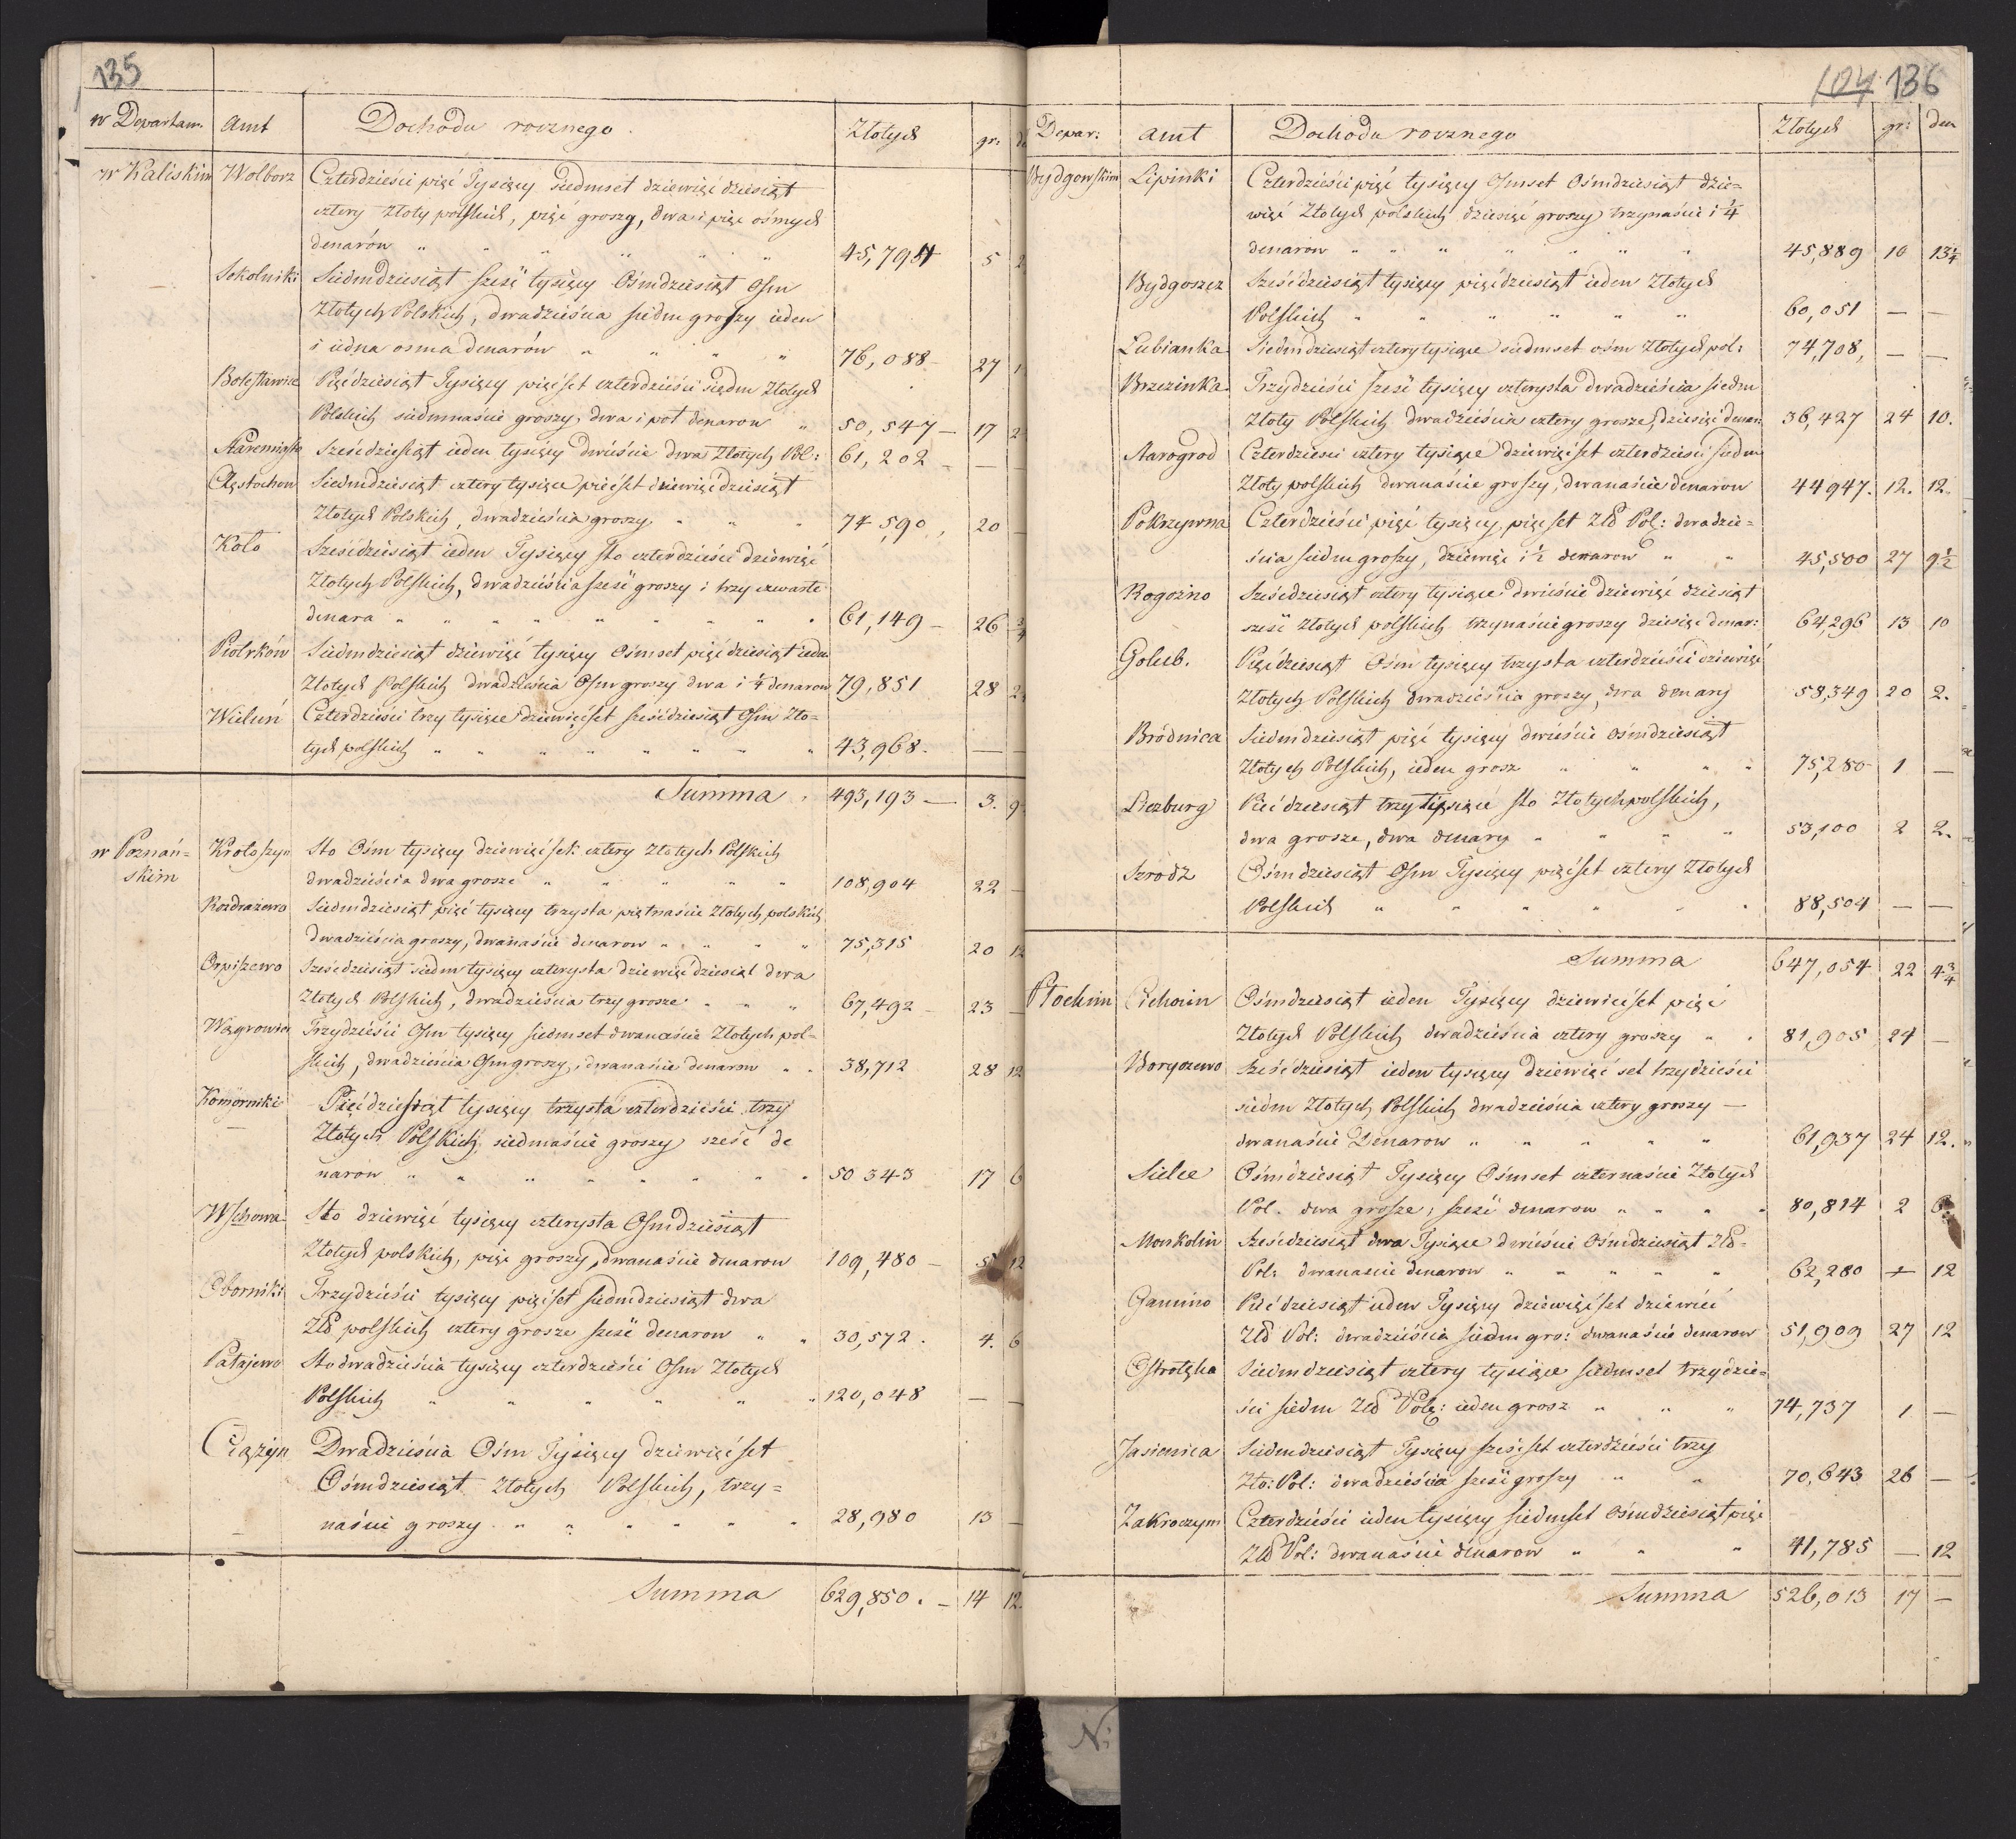 135
w Departam. Amt Dochodu rocznego Złotych gr:
w Kaliskim Wolborz Czterdzieści pięć Tysięcy siedmset dziewięćdziesiąt
cztery Złoty polskich, pięć groszy, dwa i pięc ośmych
denarów " " " " " 45,794 5 2
Sokolniki Siedmdziesiąt sześć tysięcy Ośmdziesiąt Osm
Złotych Polskich, dwadzieścia siedm groszy ieden
i iedna osma denarów " " " " 76,088 27 1
Bolesławiec Pięćdziesiąt Tysięcy pięćset czterdzieści siedm Złotych
Polskich siedmnaście groszy, dwa i poł denarow " 50,547 — 17 2
Sześćdziesiąt ieden tysięcy dwieście dwa Złotych Pol: 61,202 — —
Częstochow Siedmdziesiąt cztery tysiące pięćset dziewięćdziesiąt
Złotych Polskich, dwadzieścia groszy " " " 74,590, 20 —
Koło Sześćdziesiąt ieden Tysięcy sto czterdzieści dziewięć
Złotych Polskich, dwadzieścia sześć groszy i trzy czwarte
denara " " " " " " " " " 61,149 — 26 3/4
Piotrków Siedmdziesiąt dziewięć tysięcy Ośmset pięćdziesiąt ieden
Złotych Polskich dwadzieścia Osm groszy dwa i 1/4 denarow 79,851 28 2
Wieluń Czterdzieści trzy tysiące dziewięćset sześćdziesiąt Osm Zło=
tych polskich " " " " " " " " 43,968. — —
Summa . 493,193 — 3. 9
w Poznań= Krotoszyn Sto Ośm tysięcy dziewięćset cztery Złotych Polskich
skim dwadzieścia dwa grosze " " " " " 108,904 22 —
Rozdrażewo Siedmdziesiąt pięć tysięcy trzysta piętnaście Złotych polskich
dwadzieścia groszy, dwanaście denarow " " " " 75,315 20 12
Orpiszewo Sześćdziesiąt siedm tysięcy czterysta dziewięćdziesiąt dwa
Złotych Polskich, dwadzieścia trzy grosze " " " 67,492 — 23 —
Wągrowiec Trzydzieści Osm tysięcy siedmset dwanaście Złotych pol=
skich, dwadzieścia Osm groszy, dwanaście denarow " " 38,712 28 12
Komorniki Pięćdziesiąt tysięcy trzysta czterdzieści trzy
Złotych Polskich, siedmaście groszy sześć de
narow " " " " " " " " 50 343 17 6
Wschowa Sto dziewięć tysięcy czterysta Osmdziesiąt
Złotych polskich, pięc groszy, dwanaście denarow 109,480 — 5 12
Oborniki Trzydzieści tysięcy pięćset siedmdziesiąt dwa
Złł polskich cztery grosze sześć denarow " " 30,572. 4. 6
Pałajewo Sto dwadzieścia tysięcy czterdzieści Osm Złotych
Polskich " " " " " " 120,048 — —
Ciążyn Dwadzieścia Ośm Tysięcy dziewięćset
Ośmdziesiąt Złotych Polskich, trzy=
naście groszy " " " " " " 28,980 13 —
Summa 629,850. — 14 12.
104 136
Depar: Amt Dochodu rocznego Złotych gr: den
Bydgowskim Lipinki Czterdzieści pięć tysięcy Osmset Ośmdziesiąt dzie=
więć Złotych polskich dziesięć groszy trzynaście i 1/4
denarow " " " " " " " 45,889 10 13 1/4
Bydgoszcz Sześćdziesiąt tysięcy pięćdziesiąt ieden Złotych
Polskich " " " " " " 60,051 — —
Lubianka Siedmdziesiąt cztery tysiące siedmset ośm Złotych pol: 74,708, — —
Brzezinka Trzydzieści sześć tysięcy czterysta dwadzieścia siedm
Złoty Polskich dwadzieścia cztery grosze, dziesięć denar: 36,427 24 10.
Starogrod Czterdzieści cztery tysiące dziewięćset czterdzieści siedm
Złoty polskich dwanaście groszy, dwanaście denarow 44947. 12. 12.
Pokrzywna Czterdzieści pięć tysięcy, pięćset Złł Pol: dwadzie=
ścia siedm groszy, dziewięć i 1/2 denarow " " 45,500 27 9 1/2
Rogożno Sześćdziesiąt cztery tysiące dwieście dziewięćdziesiąt
sześć Złotych polskich trzynaście groszy dziesięć denar: 64,296 13 10
Golub. Pięćdziesiąt Osm tysięcy trzysta czterdzieści dziewięć
Złotych Polskich dwadzieścia groszy, dwa denary 58,349 20 2.
Bródnica Siedmdziesiąt pięć tysięcy dwieście ośmdziesiąt
Złotych Polskich, ieden grosz " " " " 75,280 1 —
Liczburg Pięćdziesiąt trzy tysięcie sto Złotych polskich,
dwa grosze, dwa denary " " " " 53,100 2 2.
Szrodz Ośmdziesiąt Osm Tysięcy pięćset cztery Złotych
Polskich " " " " " " 88,504 — —
Summa 647,054 22 4 3/4
Płockim Ciehoim Ośmdziesiąt ieden Tysięcy dziewięćset pięć
Złotych Polskich dwadzieścia cztery groszy " " 81,905 24 —
Boryszewo Sześćdziesiąt ieden tysięcy dziewięćset trzydzieści
siedm Złotych Polskich dwadzieścia cztery groszy —
dwanaście Denarow " " " " " 61,937 24 12.
Sielce Ośmdziesiąt Tysięcy Ośmset czternaście Złotych
Pol. dwa grosze, sześć denarow " " " " 80,814 2 6.
Monkolin Sześćdziesiąt dwa Tysiące dwieście Ośmdziesiąt Złł
Pol: dwanaście denarow " " " " " 62,280 — 12
Gamino Pięćdziesiąt ieden Tysięcy dziewięćset dziewięć
Złł Pol: dwadzieścia siedm gro: dwanaście denarow 51,909 27 12
Ostrołęka Siedmdziesiąt cztery tysiące siedmset trzydzie=
ści siedm Złł Pol: ieden grosz " " " 74,737 1 —
Jasienica Siedmdziesiąt Tysięcy sześćset czterdzieści trzy
Zło: Pol: dwadzieścia sześć groszy " " 70,643 26 —
Zakroczym Czterdzieści ieden tysięcy siedmset ośmdziesiąt pięć
Złł Pol: dwanaście denarow " " " 41,785 — 12
Summa 526,013 17 —